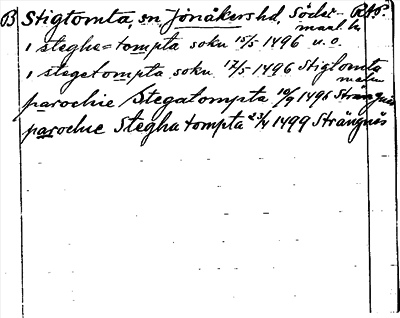 B Stigtomta, sn Jönåkers hd, Söder-
manl. län
i steghe=tompta soku 15/5 1496 u. o.
i stegatompta soku 17/5 1496 Stigtomta
parochie Stegatompta 10/9 1496 Strängnäs
parochie Stegha tompta 23/4 1499 Strängnäs